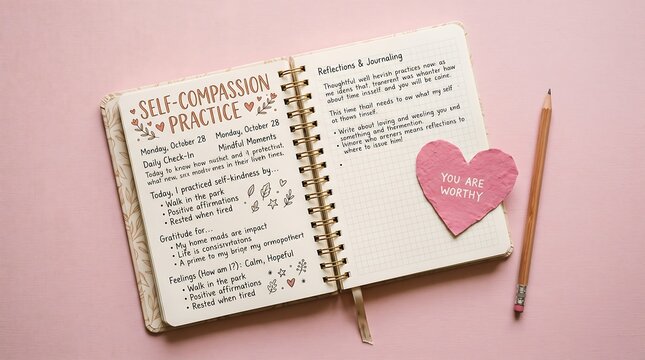 SELF-COMPASSION
PRACTICE
Monday, October 28 Monday, October 28
Daily Check-In Mindful Moments
Today to know how and I protectist,
what new, modsvrnes in their livesh times.
Today, I practiced self-kindness by...
• Walk in the park
• Positive affirmations
• Rested when tired
Gratitude for...
• My home mads are impact
• Life is
• A prime to my brige my
Feelings (How am I?): Calm, Hopeful
• Walk in the park
• Positive affirmations
• Rested when tired
Reflections & Journaling
Thoughtful well hevish practices now: as
me idens that, tranerent was whanter how
about time inself and you will be caine.
This time thail needs to ow what my self
at thows tinself.
• Write about loving and weeling you end
something and thermention.
• Vimore who areners means reflections to
where to issue him!
YOU ARE
WORTHY